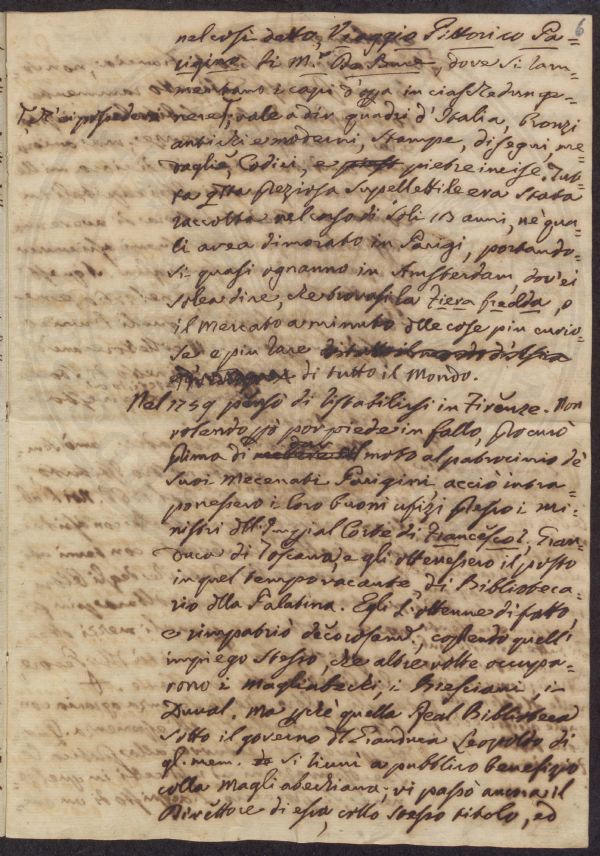 6
nel così detto, Viaggio Pittorico Pa=
rigino di M.r, dove si ram=
mentano i capi d'opa in ciaschedun ge=
T, ch'ei possedeva
nere T, vale a dir quadri d'Italia, Bronzi
antichi e moderni, stampe, disegni, me=
daglie, Codici, e pietre incise. Tut=
ta qsta preziosa suppellettile era stata
raccolta nel corso di soli 13 anni, ne' qua=
li avea dimorato in Parigi, portando=
si quasi ognanno in Amsterdam dov'ei
solea dire, che trovasi la Fiera fredda, o
il Mercato a minuto delle cose più curio=
se e più rare
di tutto il Mondo.
Nel 1759 pensò di ristabilirsi in Firenze. Non
volendo pò por piede in fallo, procurò
prima di dar moto al patrocinio de'
suoi Mecenati Parigini, acciò intra=
ponessero i loro buoni ufizi presso i mi=
nistri dell'Imperial Corte di Francesco I. Gran=
duca di Toscana, e gli ottenessero il posto
in quel tempo vacante, di Biblioteca=
rio della Palatina. Egli l'ottenne di fatto,
e rimpatriò decorosamte, coprendo quell'
impiego stesso, che altre volte occupa=
rono i Magliabechi, i Bresciani, i
Duval. Ma pchè quella Real Biblioteca
sotto il governo del Granduca Leopoldo di
gl. mem. si riunì a pubblico benefizio
colla Magliabechiana; vi passò ancora il
Direttore di essa, collo stesso titolo, ed